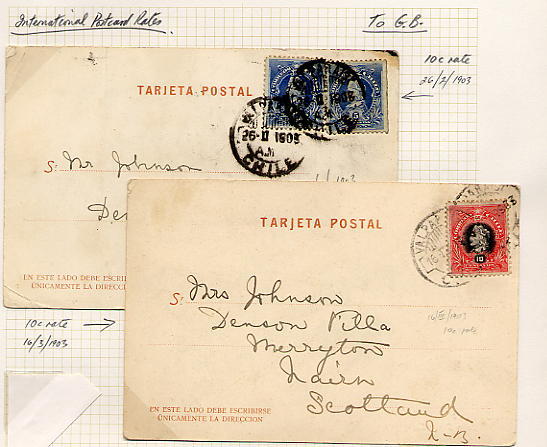 International Postcard Rates
To G.B.
10c rate
26/2/1903
TARJETA POSTAL
26-II 1903
A.M
CHILE
5
S: Mr Johnson
Den
EN ESTE LADO DEBE ESCRIB
ÚNICAMENTE LA DIRECCIO
10c rate →
16/3/1903
TARJETA POSTAL
10
S: Mrs Johnson
Denson Villa
Merryton
Nairn
Scottland
N.B.
16/III/1903
10c rate
EN ESTE LADO DEBE ESCRIBIRSE
ÚNICAMENTE LA DIRECCION